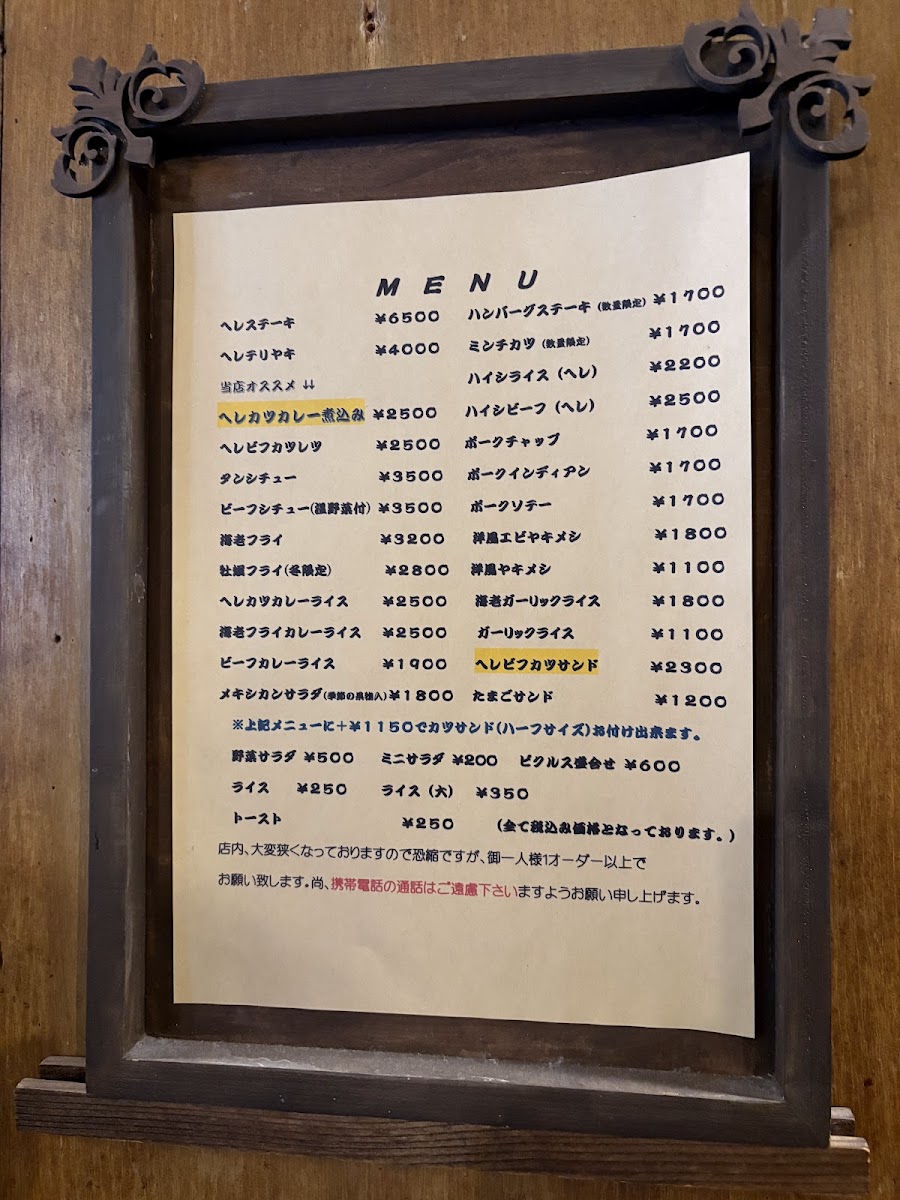 MENU
ヘレステーキ ￥6500
ヘレテリヤキ ￥4000
当店オススメ ↓↓
ヘレカツカレー煮込み ￥2500
ヘレビフカツレツ ￥2500
タンシチュー ￥3500
ビーフシチュー(温野菜付) ￥3500
海老フライ ￥3200
牡蠣フライ(冬限定) ￥2800
ヘレカツカレーライス ￥2500
海老フライカレーライス ￥2500
ビーフカレーライス ￥1900
メキシカンサラダ(季節の果物入) ￥1800
ハンバーグステーキ (数量限定) ￥1700
ミンチカツ (数量限定) ￥1700
ハイシライス (ヘレ) ￥2200
ハイシビーフ (ヘレ) ￥2500
ポークチャップ ￥1700
ポークインディアン ￥1700
ポークソテー ￥1700
洋風エビヤキメシ ￥1800
洋風ヤキメシ ￥1100
海老ガーリックライス ￥1800
ガーリックライス ￥1100
ヘレビフカツサンド ￥2300
たまごサンド ￥1200
※上記メニューに＋￥1150でカツサンド(ハーフサイズ)お付け出来ます。
野菜サラダ ￥500 ミニサラダ ￥200 ピクルス盛合せ ￥600
ライス ￥250 ライス (大) ￥350
トースト ￥250 (全て税込み価格となっております。)
店内、大変狭くなっておりますので恐縮ですが、御一人様1オーダー以上で
お願い致します。尚、携帯電話の通話はご遠慮下さいますようお願い申し上げます。